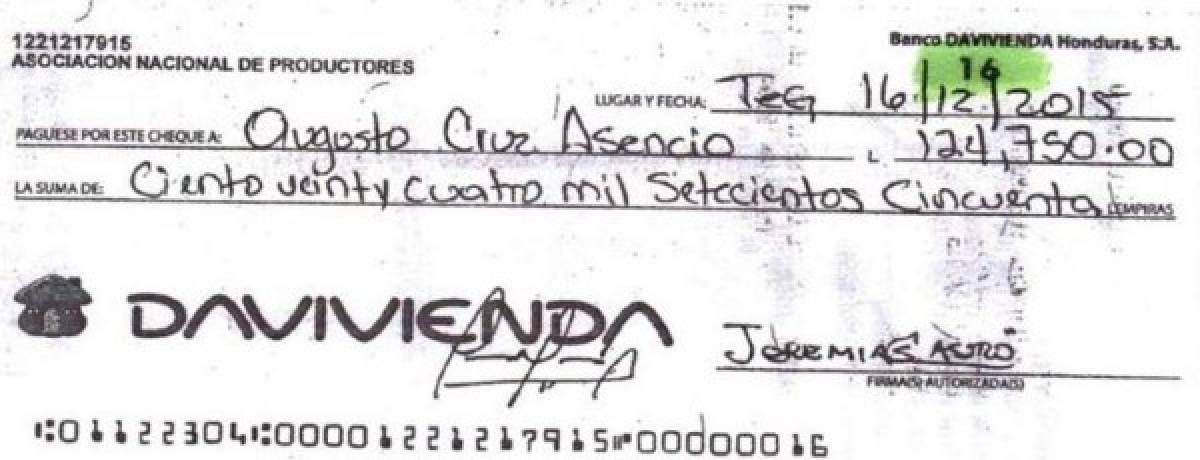 1221217915
ASOCIACION NACIONAL DE PRODUCTORES
Banco DAVIVIENDA Honduras, S.A.
16
LUGAR Y FECHA: TEG 16/12/2015
PAGUESE POR ESTE CHEQUE A: Augusto Cruz Asencio L 124,750.00
LA SUMA DE: Ciento veinty cuatro mil Setecientos Cincuenta LEMPIRAS
DAVIVIENDA
JEREMIAS
FIRMA(S) AUTORIZADA(S)
⑆01122304⑆00001221217915⑈00000016